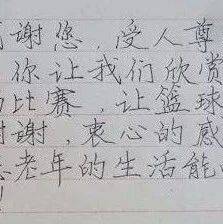 谢您，受人尊
你让我们欣赏
比赛，让篮球
谢，衷心的感
老年的生活能
!